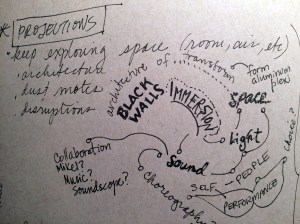 * PROJECTIONS
• keep exploring space (room, air, etc)
• architecture
dust motes
disruptions
architecture of ... transform
form
aluminum
plexi
BLACK
WALLS
IMMERSION
Space
Light
Sound
Choice?
Collaboration
Mikel?
Music?
Soundscape?
Choreography
SELF - PEOPLE
PERFORMANCE